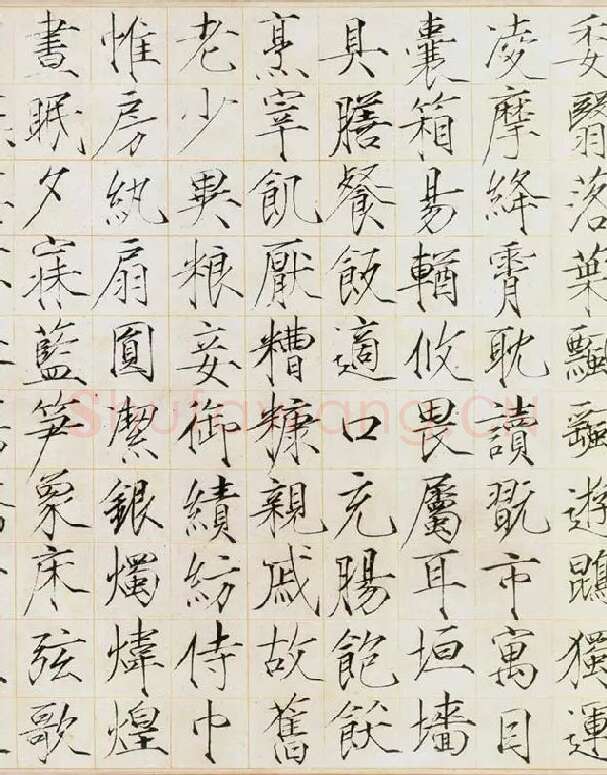 委翳落葉飄飖遊鵾獨運
凌摩絳霄耽讀翫市寓目
囊箱易輶攸畏屬耳垣墻
具膳餐飯適口充腸飽飫
烹宰飢厭糟糠親戚故舊
老少異粮妾御績紡侍巾
帷房紈扇圓潔銀燭煒煌
晝眠夕寐藍笋象床弦歌
Shufawang.CN